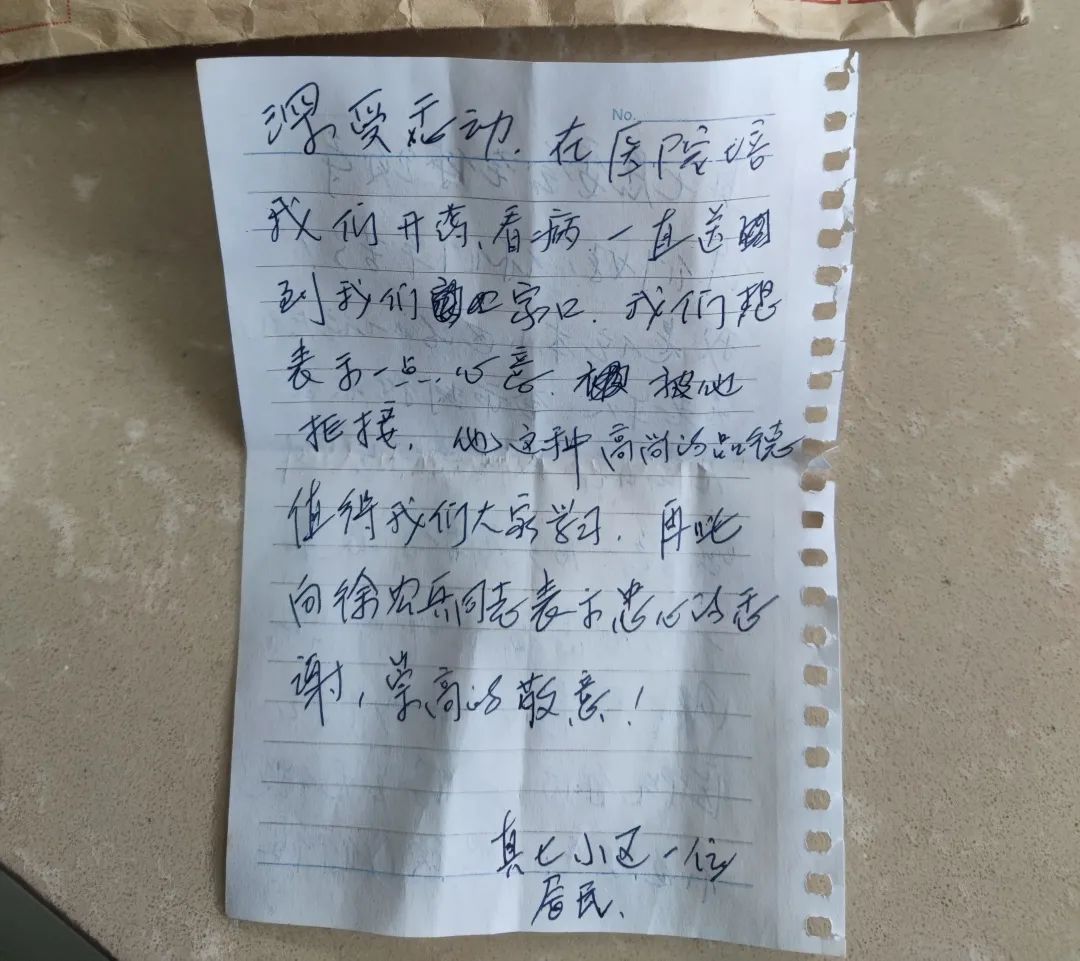 No.
深受感动。在医院培
我们开药、看病一直送
到我们家口。我们想
表示一点心意。被他
拒接。他这种高尚的品德
值得我们大家学习。再此
向徐宏兵同志表示忠心的感
谢，崇高的敬意！
真七小区一位
居民。